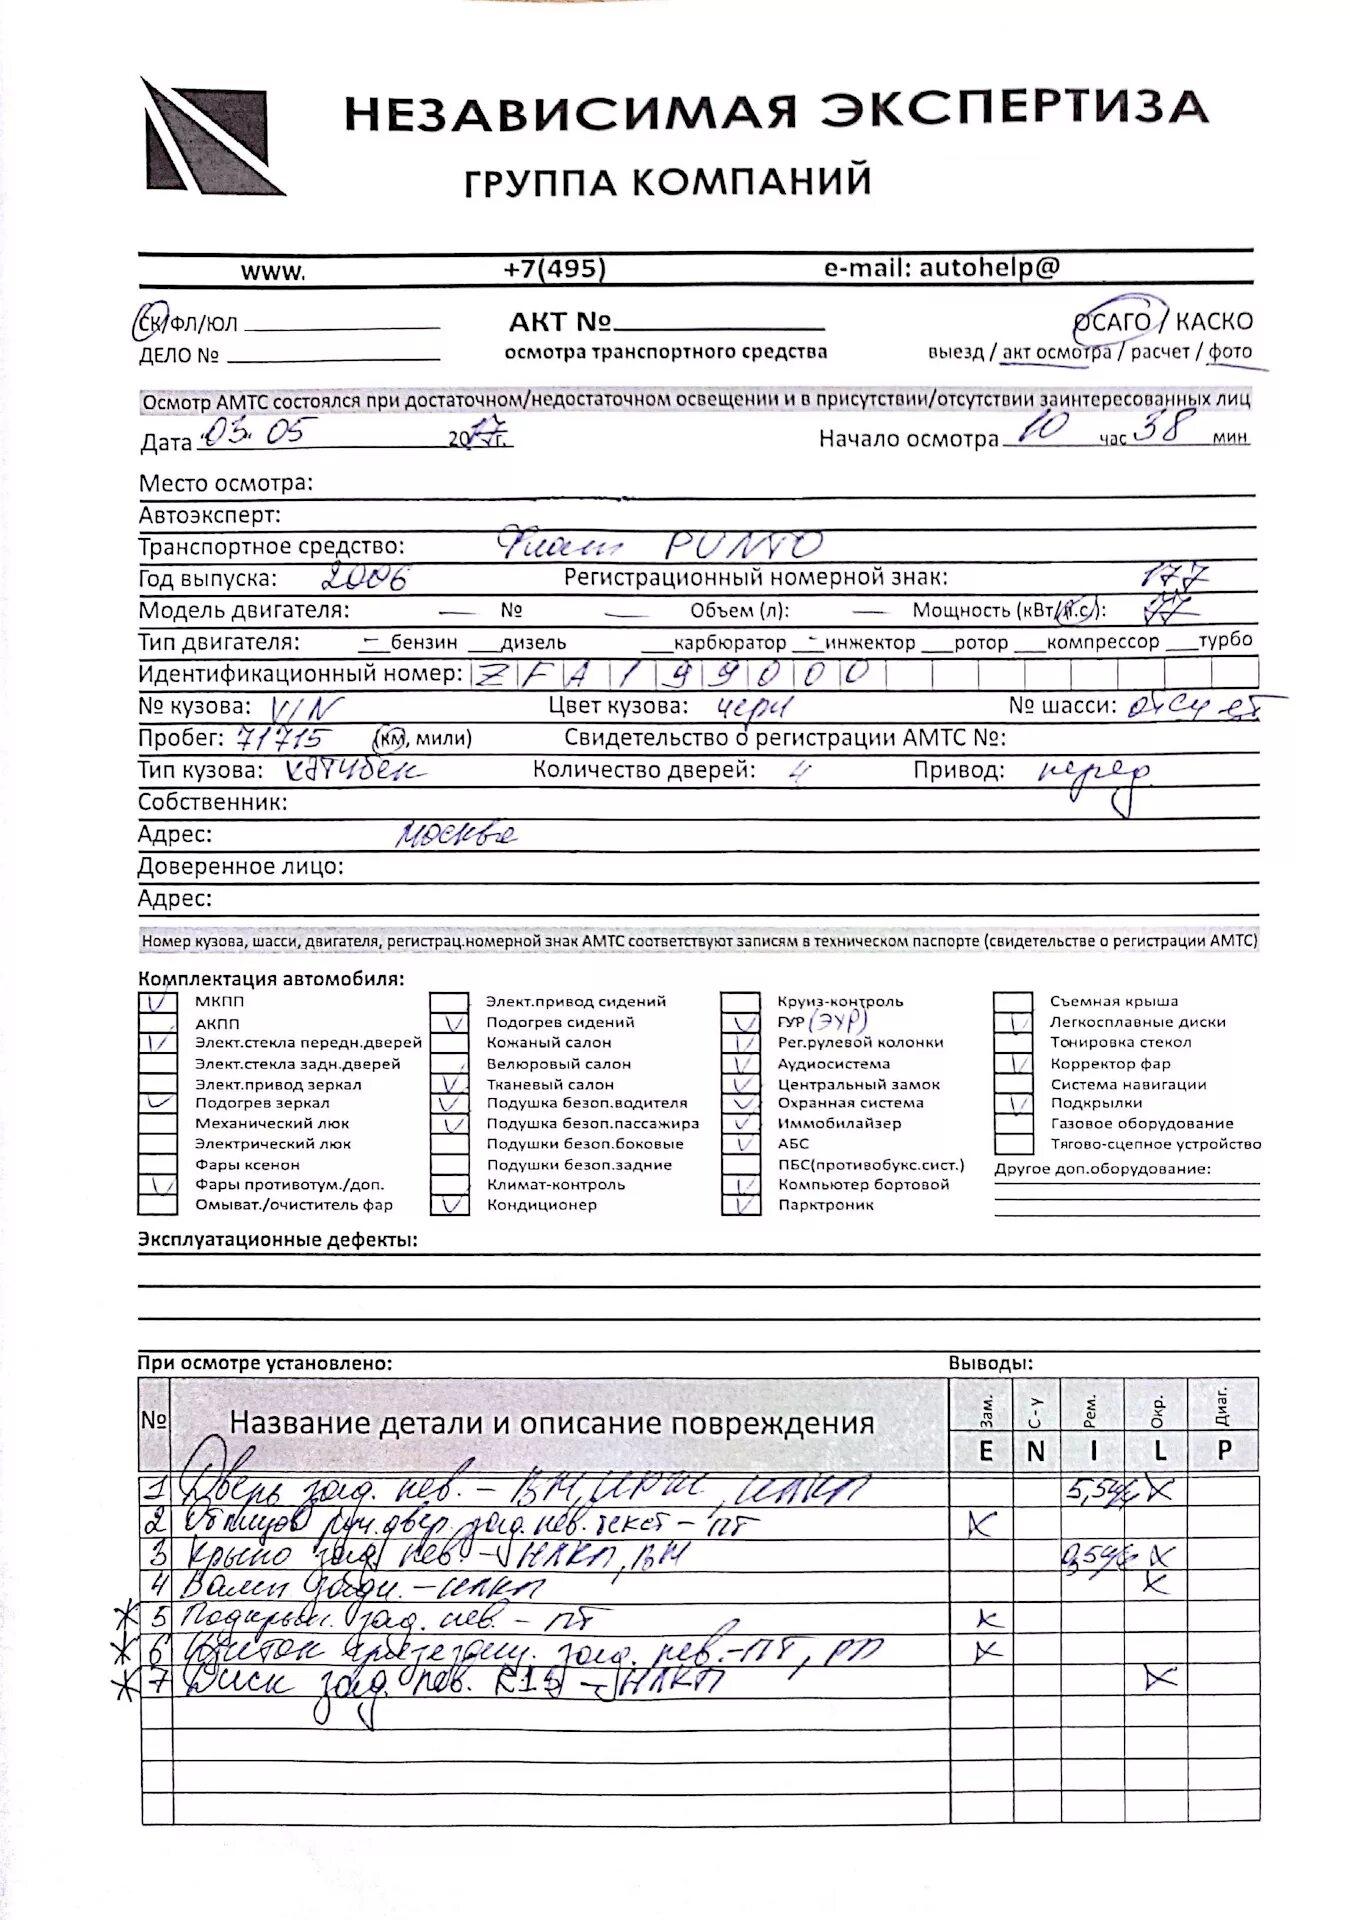 НЕЗАВИСИМАЯ ЭКСПЕРТИЗА
ГРУППА КОМПАНИЙ
www. +7(495) e-mail: autohelp@
СК/ФЛ/ЮЛ АКТ № ОСАГО / КАСКО
ДЕЛО № осмотра транспортного средства выезд / акт осмотра / расчет / фото
Осмотр АМТС состоялся при достаточном/недостаточном освещении и в присутствии/отсутствии заинтересованных лиц
Дата 03. 05 2017г. Начало осмотра 10 час 38 мин
Место осмотра:
Автоэксперт:
Транспортное средство: Фиат PUNTO
Год выпуска: 2006 Регистрационный номерной знак: 177
Модель двигателя: — № — Объем (л): — Мощность (кВт/л.с.): 77
Тип двигателя: бензин дизель карбюратор инжектор ротор компрессор турбо
Идентификационный номер: ZFA199000
№ кузова: VIN Цвет кузова: черн № шасси: отсут
Пробег: 71715 (км, мили) Свидетельство о регистрации АМТС №:
Тип кузова: хэтчбек Количество дверей: 4 Привод: перед.
Собственник:
Адрес: Москва
Доверенное лицо:
Адрес:
Номер кузова, шасси, двигателя, регистрац.номерной знак АМТС соответствуют записям в техническом паспорте (свидетельстве о регистрации АМТС)
Комплектация автомобиля:
МКПП Элект.привод сидений Круиз-контроль Съемная крыша
АКПП Подогрев сидений ГУР (ЭУР) Легкосплавные диски
Элект.стекла передн.дверей Кожаный салон Рег.рулевой колонки Тонировка стекол
Элект.стекла задн.дверей Велюровый салон Аудиосистема Корректор фар
Элект.привод зеркал Тканевый салон Центральный замок Система навигации
Подогрев зеркал Подушка безоп.водителя Охранная система Подкрылки
Механический люк Подушка безоп.пассажира Иммобилайзер Газовое оборудование
Электрический люк Подушки безоп.боковые АБС Тягово-сцепное устройство
Фары ксенон Подушки безоп.задние ПБС(противобукс.сист.) Другое доп.оборудование:
Фары противотум./доп. Климат-контроль Компьютер бортовой
Омыват./очиститель фар Кондиционер Парктроник
Эксплуатационные дефекты:
При осмотре установлено: Выводы:
№ Название детали и описание повреждения Зам. С-у Рем. Окр. Диаг.
E N I L P
1 Дверь зад. лев. - ВН, НЛКП x
2 двер. зад. лев. текст - ПТ x
3 Крыло зад. лев. - НЛКП, ВН x
4 - НЛКП x
5 Подкрыл. зад. лев. - ПТ x
6 зад. лев. - ПТ, РП x
7 Диск зад. лев. R15 - НЛКП x